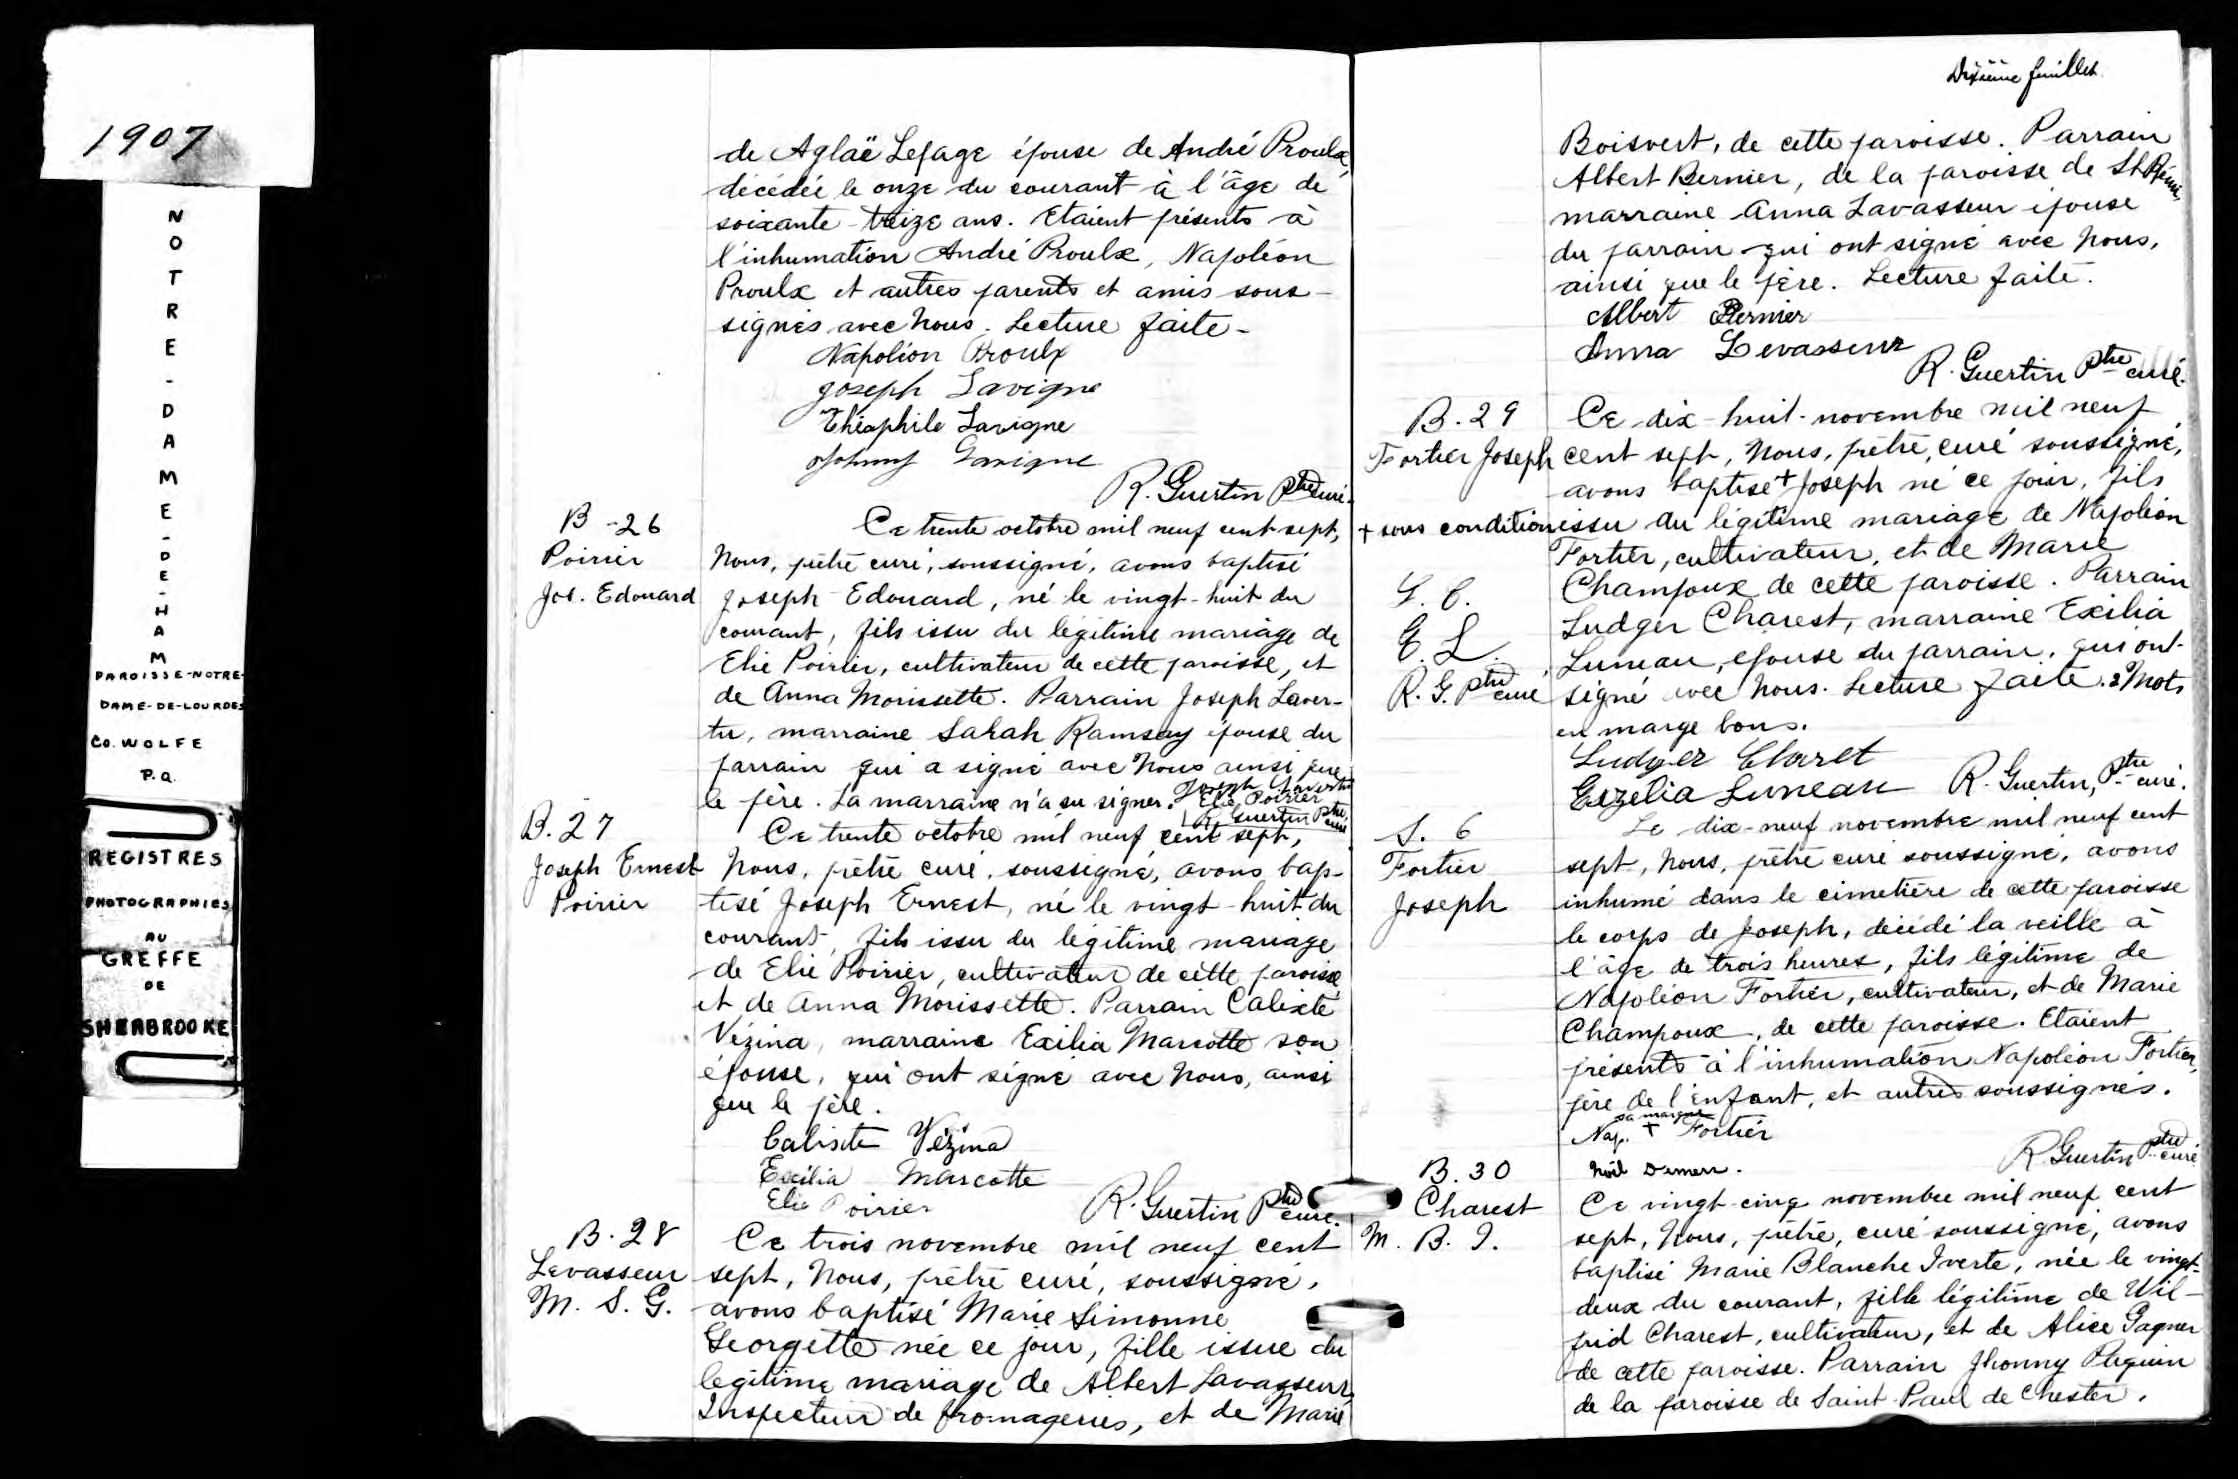 1907
NOTRE-DAME-DE-HAM
PAROISSE-NOTRE-
DAME-DE-LOURDES
CO. WOLFE
P.Q.
REGISTRES
PHOTOGRAPHIES
AU
GREFFE
DE
SHERBROOKE
de Aglaë Lepage épouse de André Proulx,
décédée le onze du courant à l'âge de
soixante-treize ans. Etaient présents à
l'inhumation André Proulx, Napoléon
Proulx et autres parents et amis sous-
signés avec Nous. Lecture faite-
Napoléon Proulx
Joseph Lavigne
Théophile Lavigne
Johnny Lavigne
R. Guertin Ptre curé.
B-26
Poirier
Jos. Edouard
Ce trente octobre mil neuf cent sept,
Nous, prêtre curé, soussigné, avons baptisé
Joseph Edouard, né le vingt-huit du
courant, fils issu du légitime mariage de
Elie Poirier, cultivateur de cette paroisse, et
de Anna Morissette. Parrain Joseph Laver-
tu, marraine Sarah Ramsay épouse du
parrain qui a signé avec Nous ainsi que
le père. La marraine n'a su signer. Joseph Lavertu
Elie Poirier
R. Guertin Ptre curé
B. 27
Joseph Ernest
Poirier
Ce trente octobre mil neuf cent sept,
Nous, prêtre curé, soussigné, avons bap-
tisé Joseph Ernest, né le vingt-huit du
courant, fils issu du légitime mariage
de Elie Poirier, cultivateur de cette paroisse,
et de Anna Morissette. Parrain Calixte
Vézina, marraine Exilia Marcotte son
épouse, qui ont signé avec Nous, ainsi
que le père.
Calixte Vézina
Exilia Marcotte
Elie Poirier
R. Guertin Ptre curé.
B. 28
Levasseur
M. S. G.
Ce trois novembre mil neuf cent
sept, Nous, prêtre curé, soussigné,
avons baptisé Marie Simonne
Georgette née ce jour, fille issue du
légitime mariage de Albert Lavasseur,
Inspecteur de fromageries, et de Marie
Dixième feuillet.
Boisvert, de cette paroisse. Parrain
Albert Bernier, de la paroisse de St Rémi,
marraine Anna Lavasseur épouse
du parrain qui ont signé avec Nous,
ainsi que le père. Lecture faite.
Albert Bernier
Anna Levasseur
R. Guertin Ptre curé.
B. 29
Fortier Joseph
+ sous condition
L. C.
E. L.
R. G. Ptre curé
Ce dix-huit-novembre mil neuf
cent sept, Nous, prêtre, curé soussigné,
avons baptisé + Joseph né ce jour, fils
issu du légitime mariage de Napoléon
Fortier, cultivateur, et de Marie
Champoux de cette paroisse. Parrain
Ludger Charest, marraine Exilia
Luneau, épouse du parrain, qui ont
signé avec Nous. Lecture faite. 2 Mots
en marge bons.
Ludger Charet
Exzelia Luneau
R. Guertin, Ptre curé.
S. 6
Fortier
Joseph
Le dix-neuf novembre mil neuf cent
sept, Nous, prêtre curé soussigné, avons
inhumé dans le cimetière de cette paroisse
le corps de Joseph, décédé la veille à
l'âge de trois heures, fils légitime de
Napoléon Fortier, cultivateur, et de Marie
Champoux, de cette paroisse. Etaient
présents à l'inhumation Napoléon Fortier,
père de l'enfant, et autres soussignés.
sa marque
Nap. + Fortier
Noël
R. Guertin Ptre curé
B. 30
Charest
M. B. I.
Ce vingt-cinq novembre mil neuf cent
sept, Nous, prêtre, curé soussigné, avons
baptisé Marie Blanche Iverte, née le vingt-
deux du courant, fille légitime de Wil-
frid Charest, cultivateur, et de Alice Gagner
de cette paroisse. Parrain Jhonny
de la paroisse de Saint-Paul de Chester,